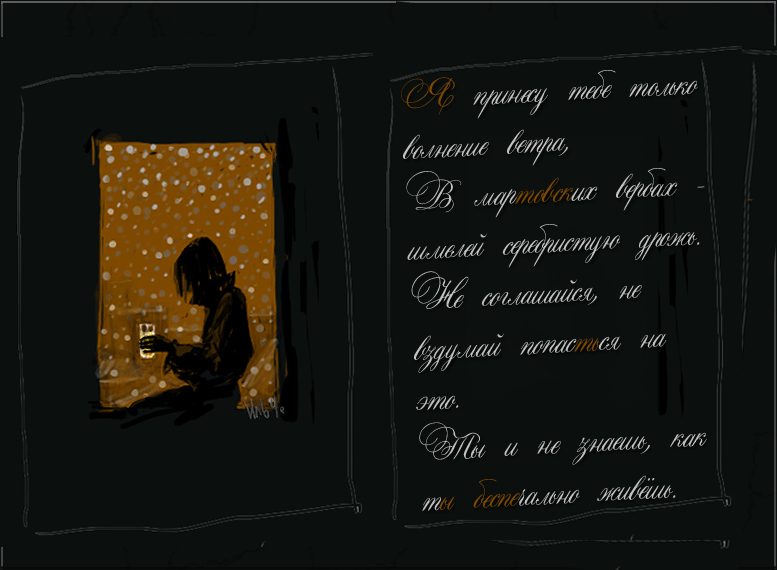 Я принесу тебе только
волнение ветра,
В мартовских вербах –
шмелей серебристую дрожь.
Не соглашайся, не
вздумай попасться на
это.
Ты и не знаешь, как
ты беспечально живёшь.